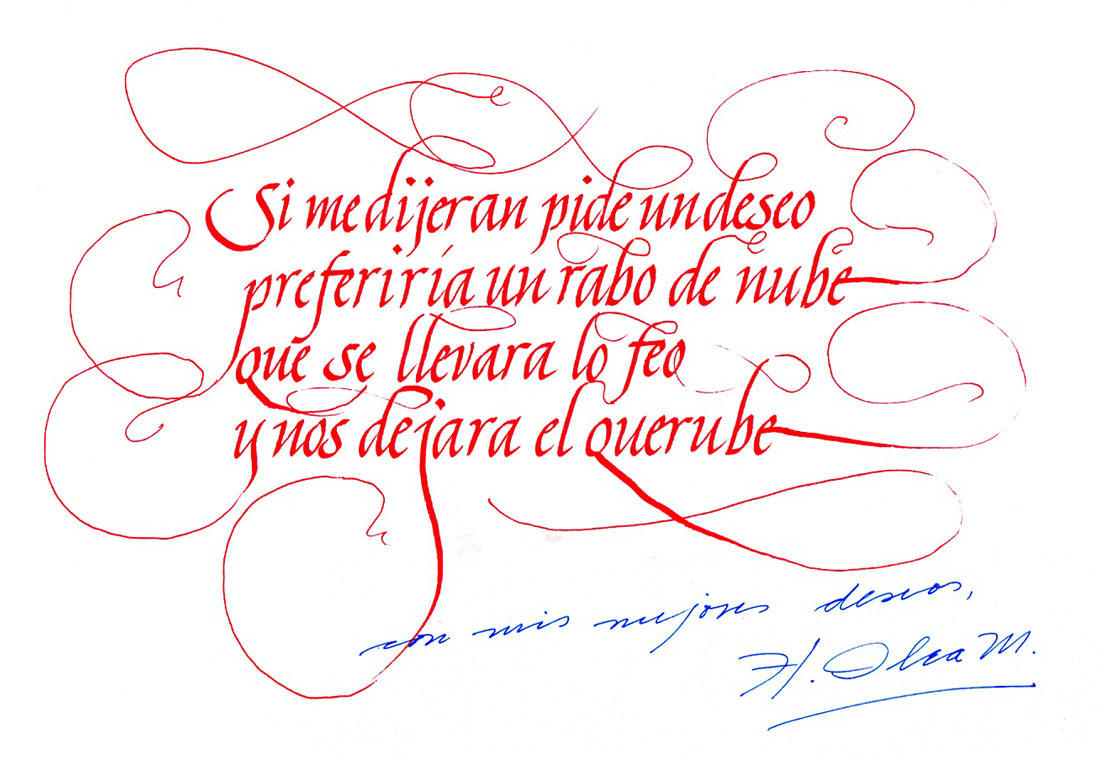 Si me dijeran pide un deseo
preferiría un rabo de nube
que se llevara lo feo
y nos dejara el querube
con mis mejores deseos,
H. Olea M.